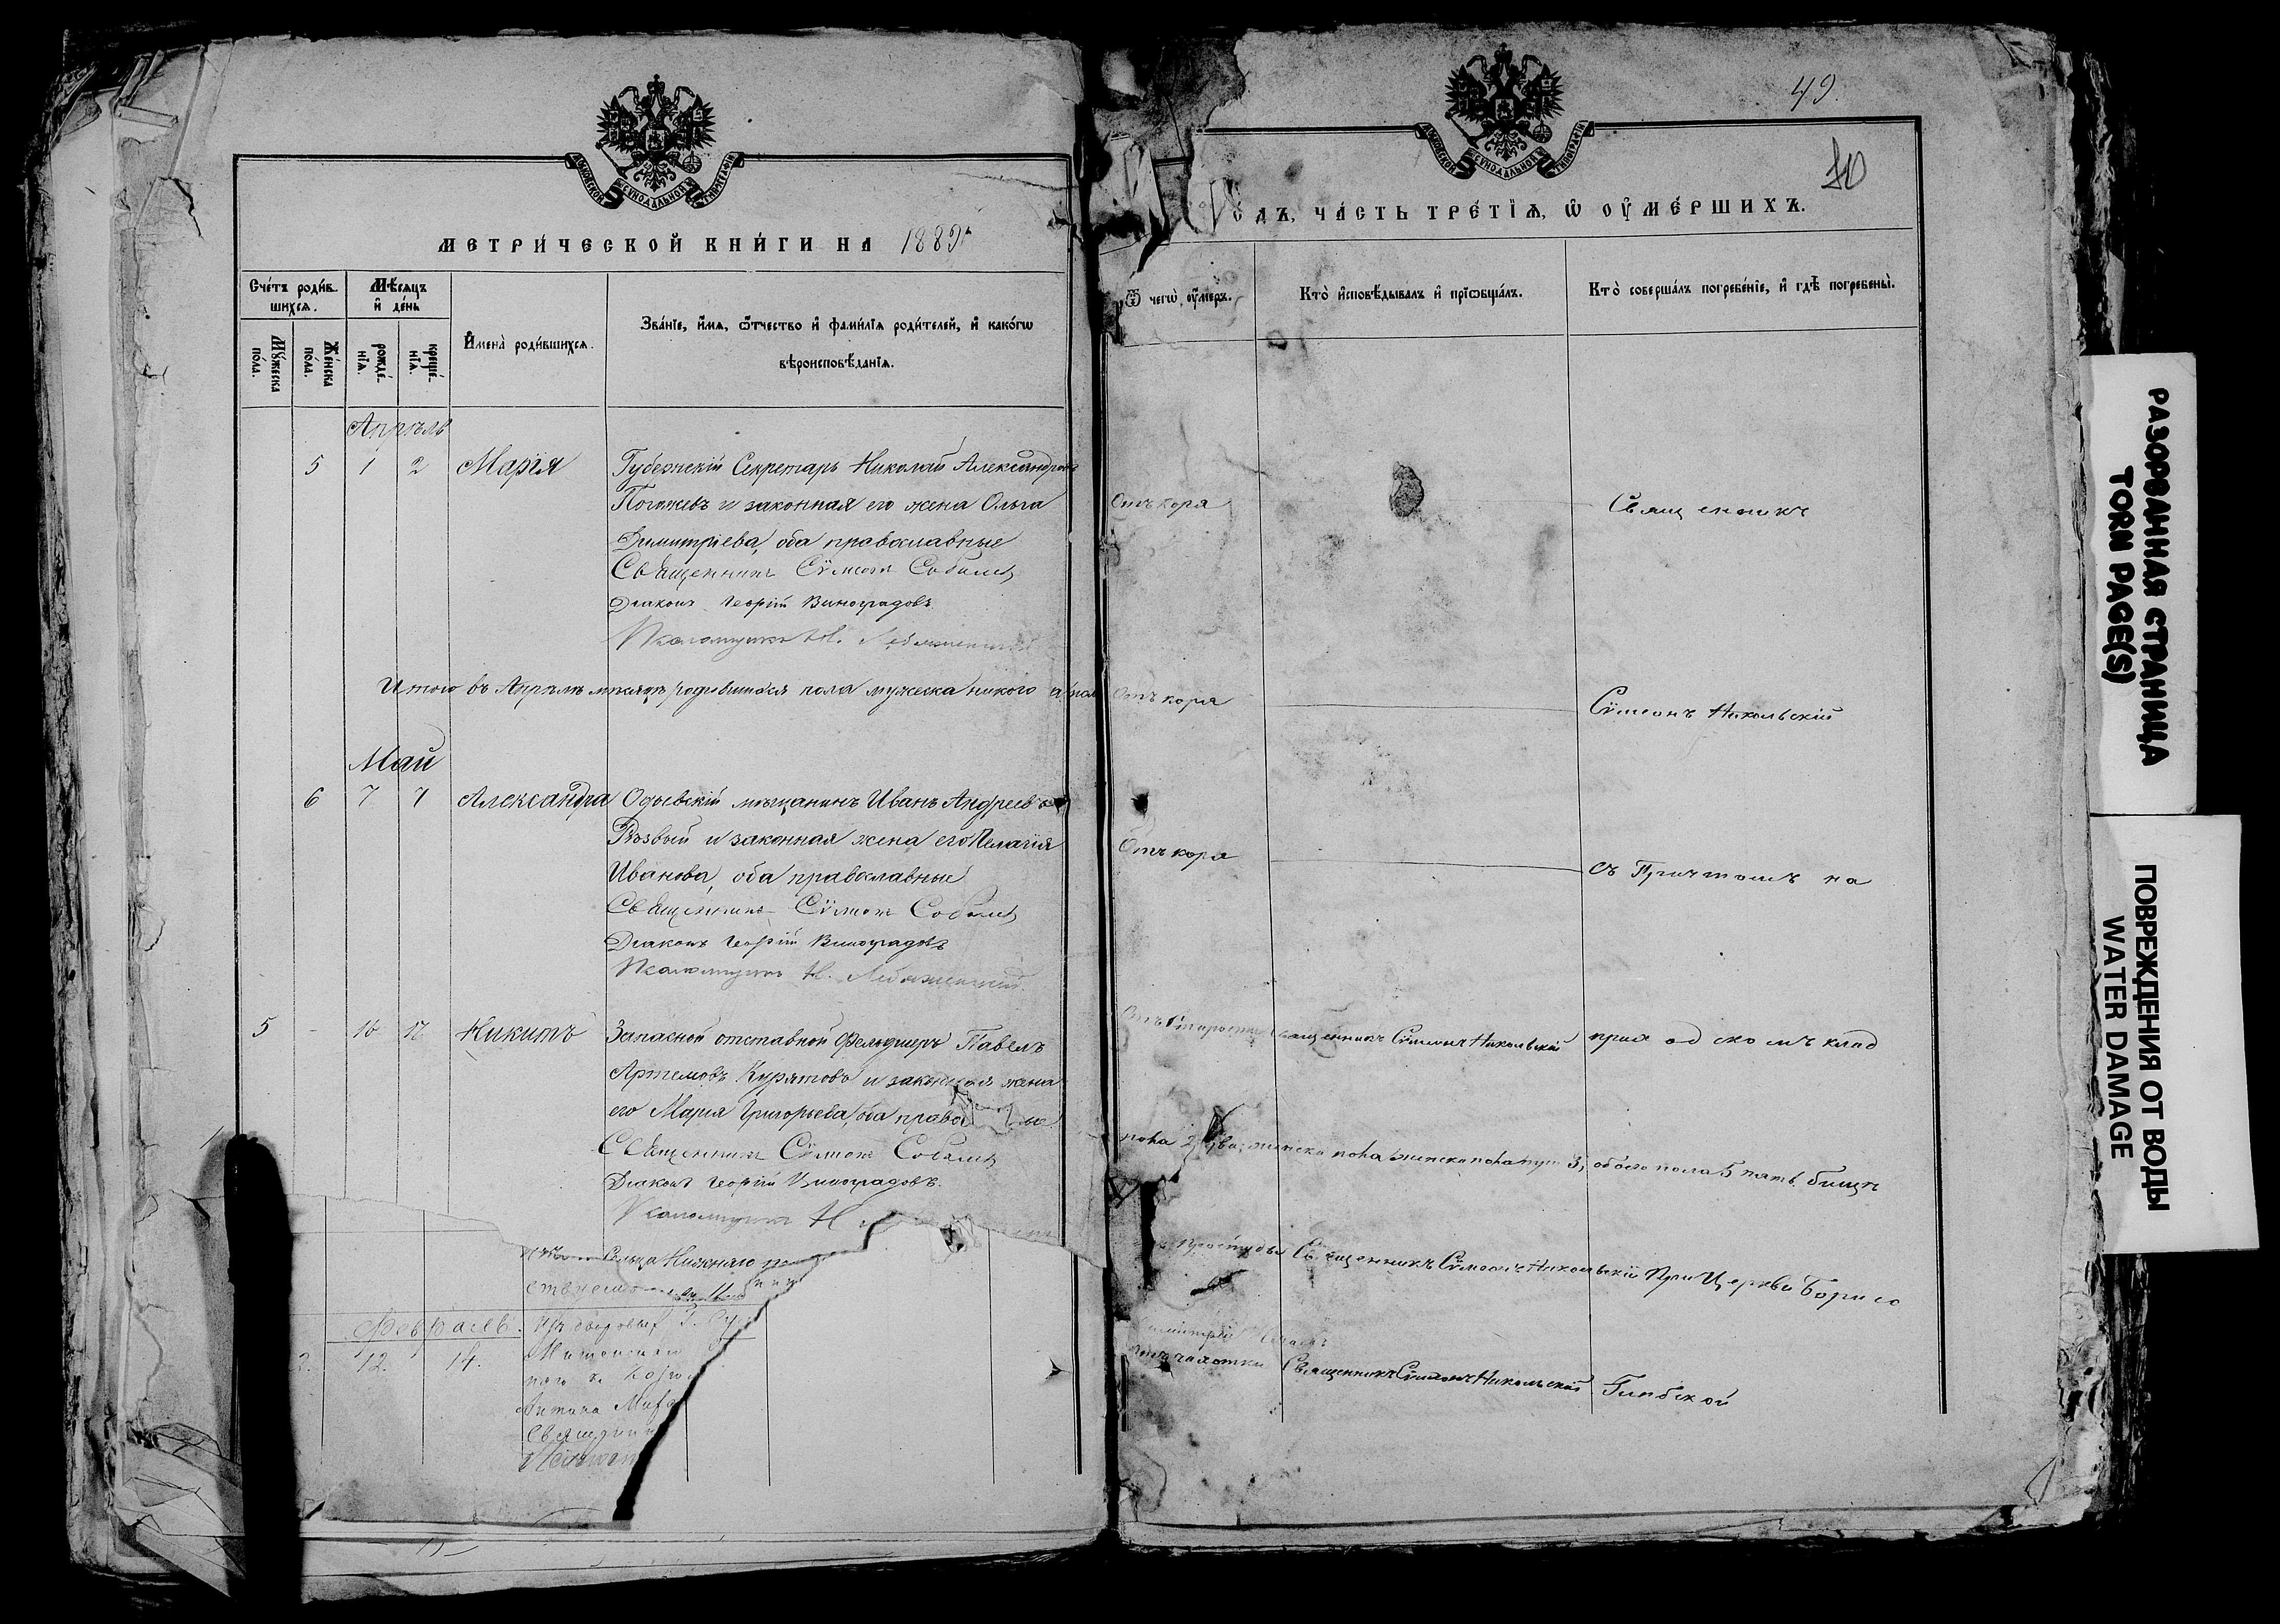 МОСКОВСКОЙ СѴНОДАЛЬНОЙ ТИПОГРАФІИ
МЕТРИ́ЧЕСКОЙ КНИ́ГИ НА 1889
Сче́тъ роди́в-
шихсѧ.
Мѣ́сѧцъ
и҆ де́нь
Мꙋ́жеска
по́ла.
Же́нска
по́ла.
рожде́-
нїѧ.
креще́-
нїѧ.
И҆мена̀ роди́вшихсѧ.
Зва́нїе, и҆́мѧ, ѻ҆́тчество и҆ фами́лїѧ роди́телей, и҆ како́гѡ
вѣроисповѣ́данїѧ.
Апрѣль
5 1 2 Марія Губернскій Секретарь Николай Александровъ
и законная его жена Ольга
Димитріева, оба православные
Священникъ Сѵмеонъ Соболевъ
Діаконъ Георгій Виноградовъ
Псаломщикъ Н.
Итого въ Апрѣлѣ мѣсяцѣ родившихся пола мужеска никого а
Май
6 7 7 Александра Одоевскій мѣщанинъ Иванъ Андреевъ
Рѣзвый и законная жена его Пелагія
Иванова, оба православные
Священникъ Сѵмеонъ Соболевъ
Діаконъ Георгій Виноградовъ
Псаломщикъ Н.
5 - 16 17 Никита Запасной отставной Фельдшеръ Павелъ
Артемовъ Курятовъ и законная жена
его Марія Григорьева, оба право
Священникъ Сѵмеонъ Соболевъ
Діаконъ Георгій Виноградовъ.
Псаломщикъ Н
Сельца Нижняго
Февраль.
2. 12. 14.
Антипа
Священни
49.
50
МОСКОВСКОЙ СѴНОДАЛЬНОЙ ТИПОГРАФІИ
ГО́ДЪ, ЧА́СТЬ ТРЕ́ТЇѦ, Ѡ҆ ОУ҆МЕ́РШИХЪ.
Ѿ чегѡ̀ оу҆́меръ.
Кто̀ и҆сповѣ́дывалъ и҆ прїѡбща́лъ.
Кто̀ соверша́лъ погребе́нїе, и҆ гдѣ̀ погребены̀.
Отъ коря Священникъ
Отъ коря Сѵмеонъ Никольскій
Отъ коря съ Причтомъ на
Отъ старости Священникъ Сѵмеонъ Никольскій приходскомъ клад
пола 2 два, женска пола три 3, обоего пола 5 пять. бищѣ
простуды Священникъ Сѵмеонъ Никольскій При Церкви Борисо
отъ чахотки Священникъ Сѵмеонъ Никольскій Глѣбской
РАЗОРВАННАЯ СТРАНИЦА
TORN PAGE(S)
ПОВРЕЖДЕНИЯ ОТ ВОДЫ
WATER DAMAGE